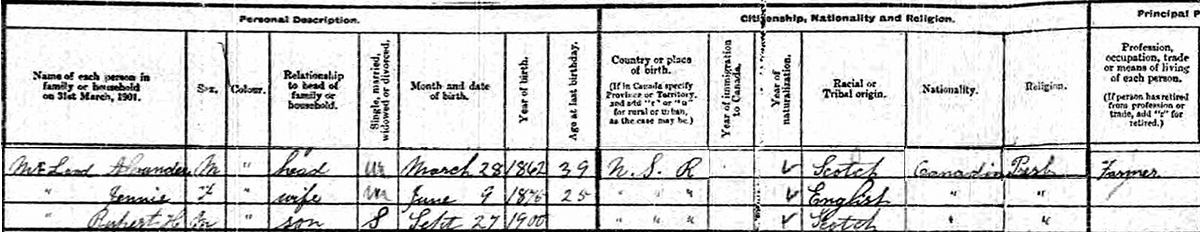 Personal Description. Citizenship, Nationality and Religion. Principal P
Name of each person in family or household on 31st March, 1901. Sex. Colour. Relationship to head of family or household. Single, married, widowed or divorced. Month and date of birth. Year of birth. Age at last birthday. Country or place of birth. (If in Canada specify Province or Territory, and add "r" or "u" for rural or urban, as the case may be.) Year of immigration to Canada. Year of naturalization. Racial or Tribal origin. Nationality. Religion. Profession, occupation, trade or means of living of each person. (If person has retired from profession or trade, add "r" for retired.)
McLeod Alexander M " head M March 28 1862 39 N. S. R ✓ Scotch Canadian Presb Farmer
" Jennie F " wife M June 9 1875 25 " " " ✓ English " "
" Rupert H M " son S Sept 27 1900 " " " ✓ Scotch " "